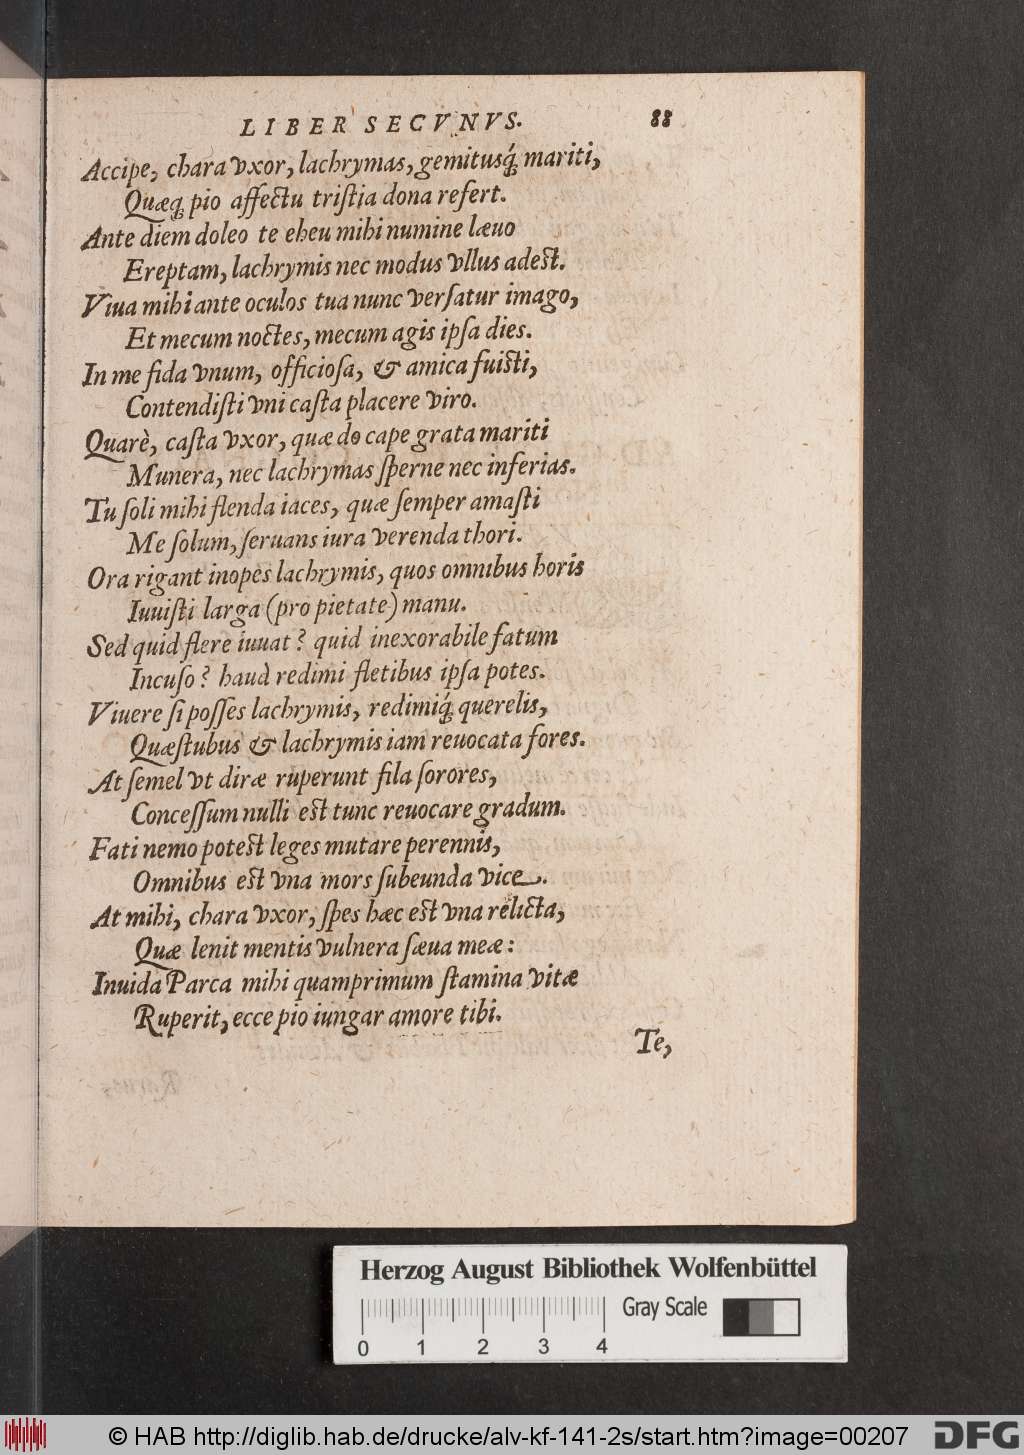 LIBER SECVNVS. 88
Accipe, chara vxor, lachrymas, gemitusq́; mariti,
Quæq; pio affectu tristia dona refert.
Ante diem doleo te eheu mihi numine læuo
Ereptam, lachrymis nec modus vllus adest.
Viua mihi ante oculos tua nunc versatur imago,
Et mecum noctes, mecum agis ipsa dies.
In me fida vnum, officiosa, & amica fuisti,
Contendisti vni casta placere viro.
Quarè, casta vxor, quæ do cape grata mariti
Munera, nec lachrymas sperne nec inferias.
Tu soli mihi flenda iaces, quæ semper amasti
Me solum, seruans iura verenda thori.
Ora rigant inopes lachrymis, quos omnibus horis
Iuuisti larga (pro pietate) manu.
Sed quid flere iuuat? quid inexorabile fatum
Incuso? haud redimi fletibus ipsa potes.
Viuere si posses lachrymis, redimiq́; querelis,
Quæstubus & lachrymis iam reuocata fores.
At semel vt diræ ruperunt fila sorores,
Concessum nulli est tunc reuocare gradum.
Fati nemo potest leges mutare perennis,
Omnibus est vna mors subeunda vice.
At mihi, chara vxor, spes hæc est vna relicta,
Quæ lenit mentis vulnera sæua meæ:
Inuida Parca mihi quamprimum stamina vitæ
Ruperit, ecce pio iungar amore tibi.
Te,
Herzog August Bibliothek Wolfenbüttel
Gray Scale
0 1 2 3 4
© HAB http://diglib.hab.de/drucke/alv-kf-141-2s/start.htm?image=00207
DFG